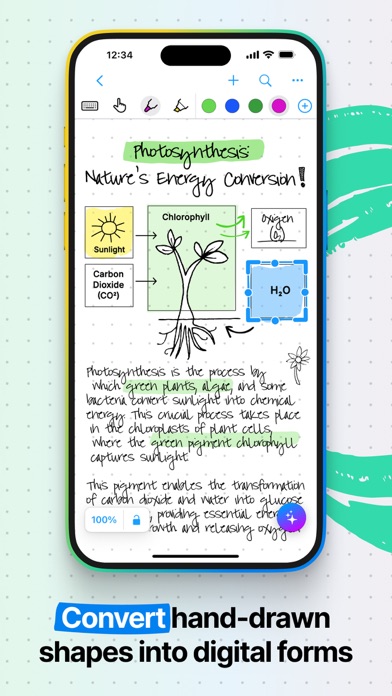 12:34
Photosynthesis:
Nature's Energy Conversion!
Chlorophyll
Oxigen
(O₂)
Sunlight
Carbon
Dioxide
(CO²)
H₂O
Photosynthesis is the process by
which green plants, algae, and some
bacteria convert sunlight into chemical
energy. This crucial process takes place
in the chloroplasts of plant cells,
where the green pigment chlorophyll
captures sunlight.
This pigment enables the transformation
of carbon dioxide and water into glucose
providing essential
and releasing oxygen
100%
Convert hand-drawn
shapes into digital forms